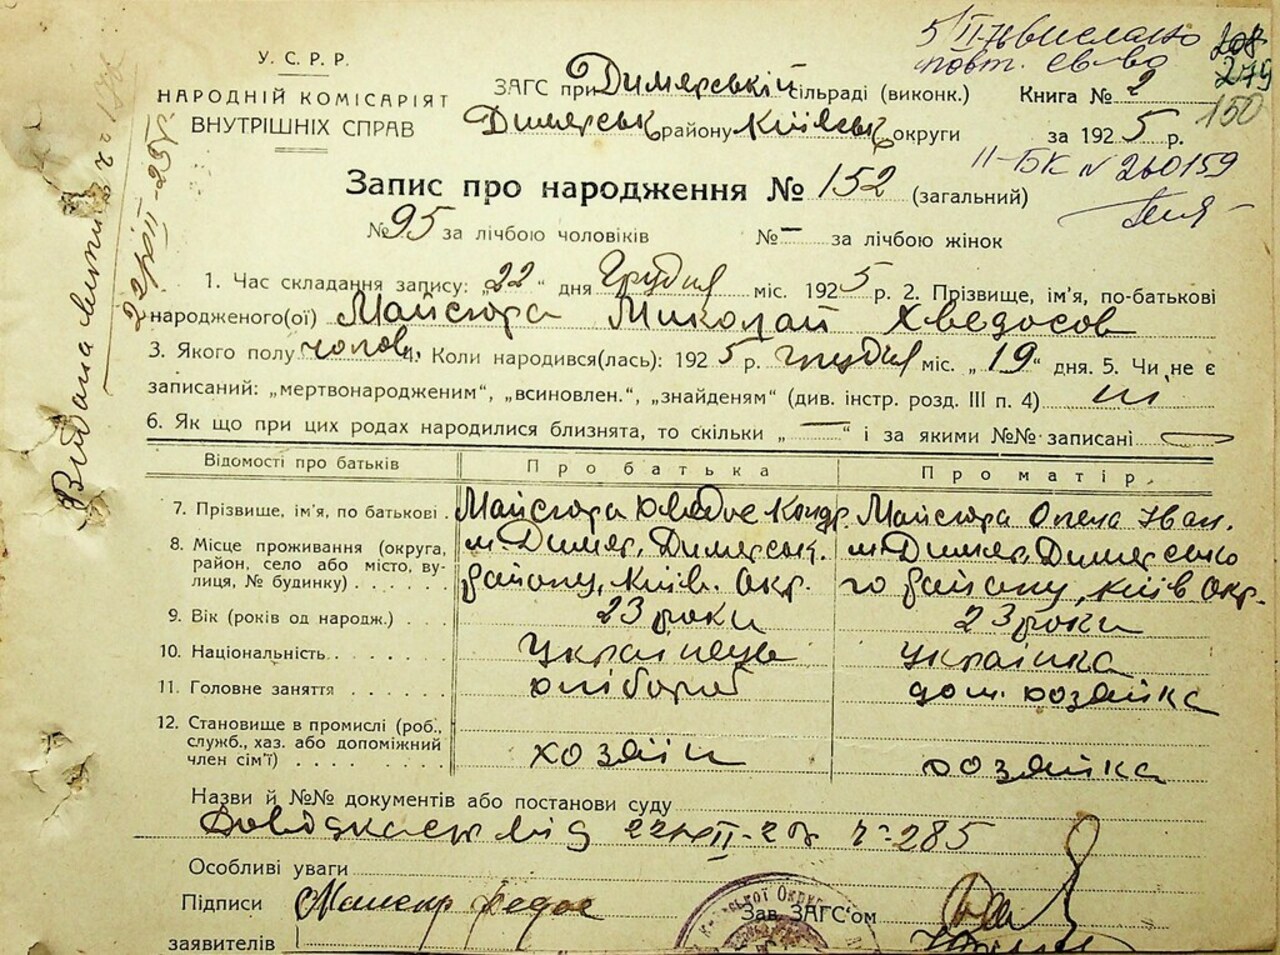 5/II-76 вислано
повт. св-во
208
279
150
У. С. Р. Р.
НАРОДНІЙ КОМІСАРІЯТ
ВНУТРІШНІХ СПРАВ
ЗАГС при Димерській сільраді (виконк.) Книга № 2
Димерськ району Київськ округи за 1925 р.
II-БК № 260159
Запис про народження № 152 (загальний)
№ 95 за лічбою чоловіків № — за лічбою жінок
1. Час складання запису: „22“ дня Грудня міс. 1925 р. 2. Прізвище, ім'я, по-батькові
народженого(ої) Майстра Миколай Хведосов
3. Якого полу чолов. 4. Коли народився(лась): 1925 р. грудня міс. „19“ дня. 5. Чи не є
записаний: „мертвонародженим“, „всиновлен.“, „знайденям“ (див. інстр. розд. III п. 4) ні
6. Як що при цих родах народилися близнята, то скільки „—“ і за якими №№ записані —
Відомості про батьків Про батька Про матір
7. Прізвище, ім'я, по батькові . Майстра Хведос Кондр. Майстра Олена Іван.
8. Місце проживання (округа, м. Димер, Димерськ. м. Димер, Димерсько
район, село або місто, ву- району, Київ. Окр. го району, Київ Окр.
лиця, № будинку) . . . . .
9. Вік (років од народж.) . . . 23 роки 23 роки
10. Національність . . . . . . . Українець Українка
11. Головне заняття . . . . . . хлібороб дом. хозяйка
12. Становище в промислі (роб.,
служб., хаз. або допоміжний
член сім'ї) . . . . . . . . хозяїн хозяйка
Назви й №№ документів або постанови суду
№ 285
Особливі уваги
Підписи Майстр Федос Зав. ЗАГС'ом
заявителів
Видана
22/XII-25р.